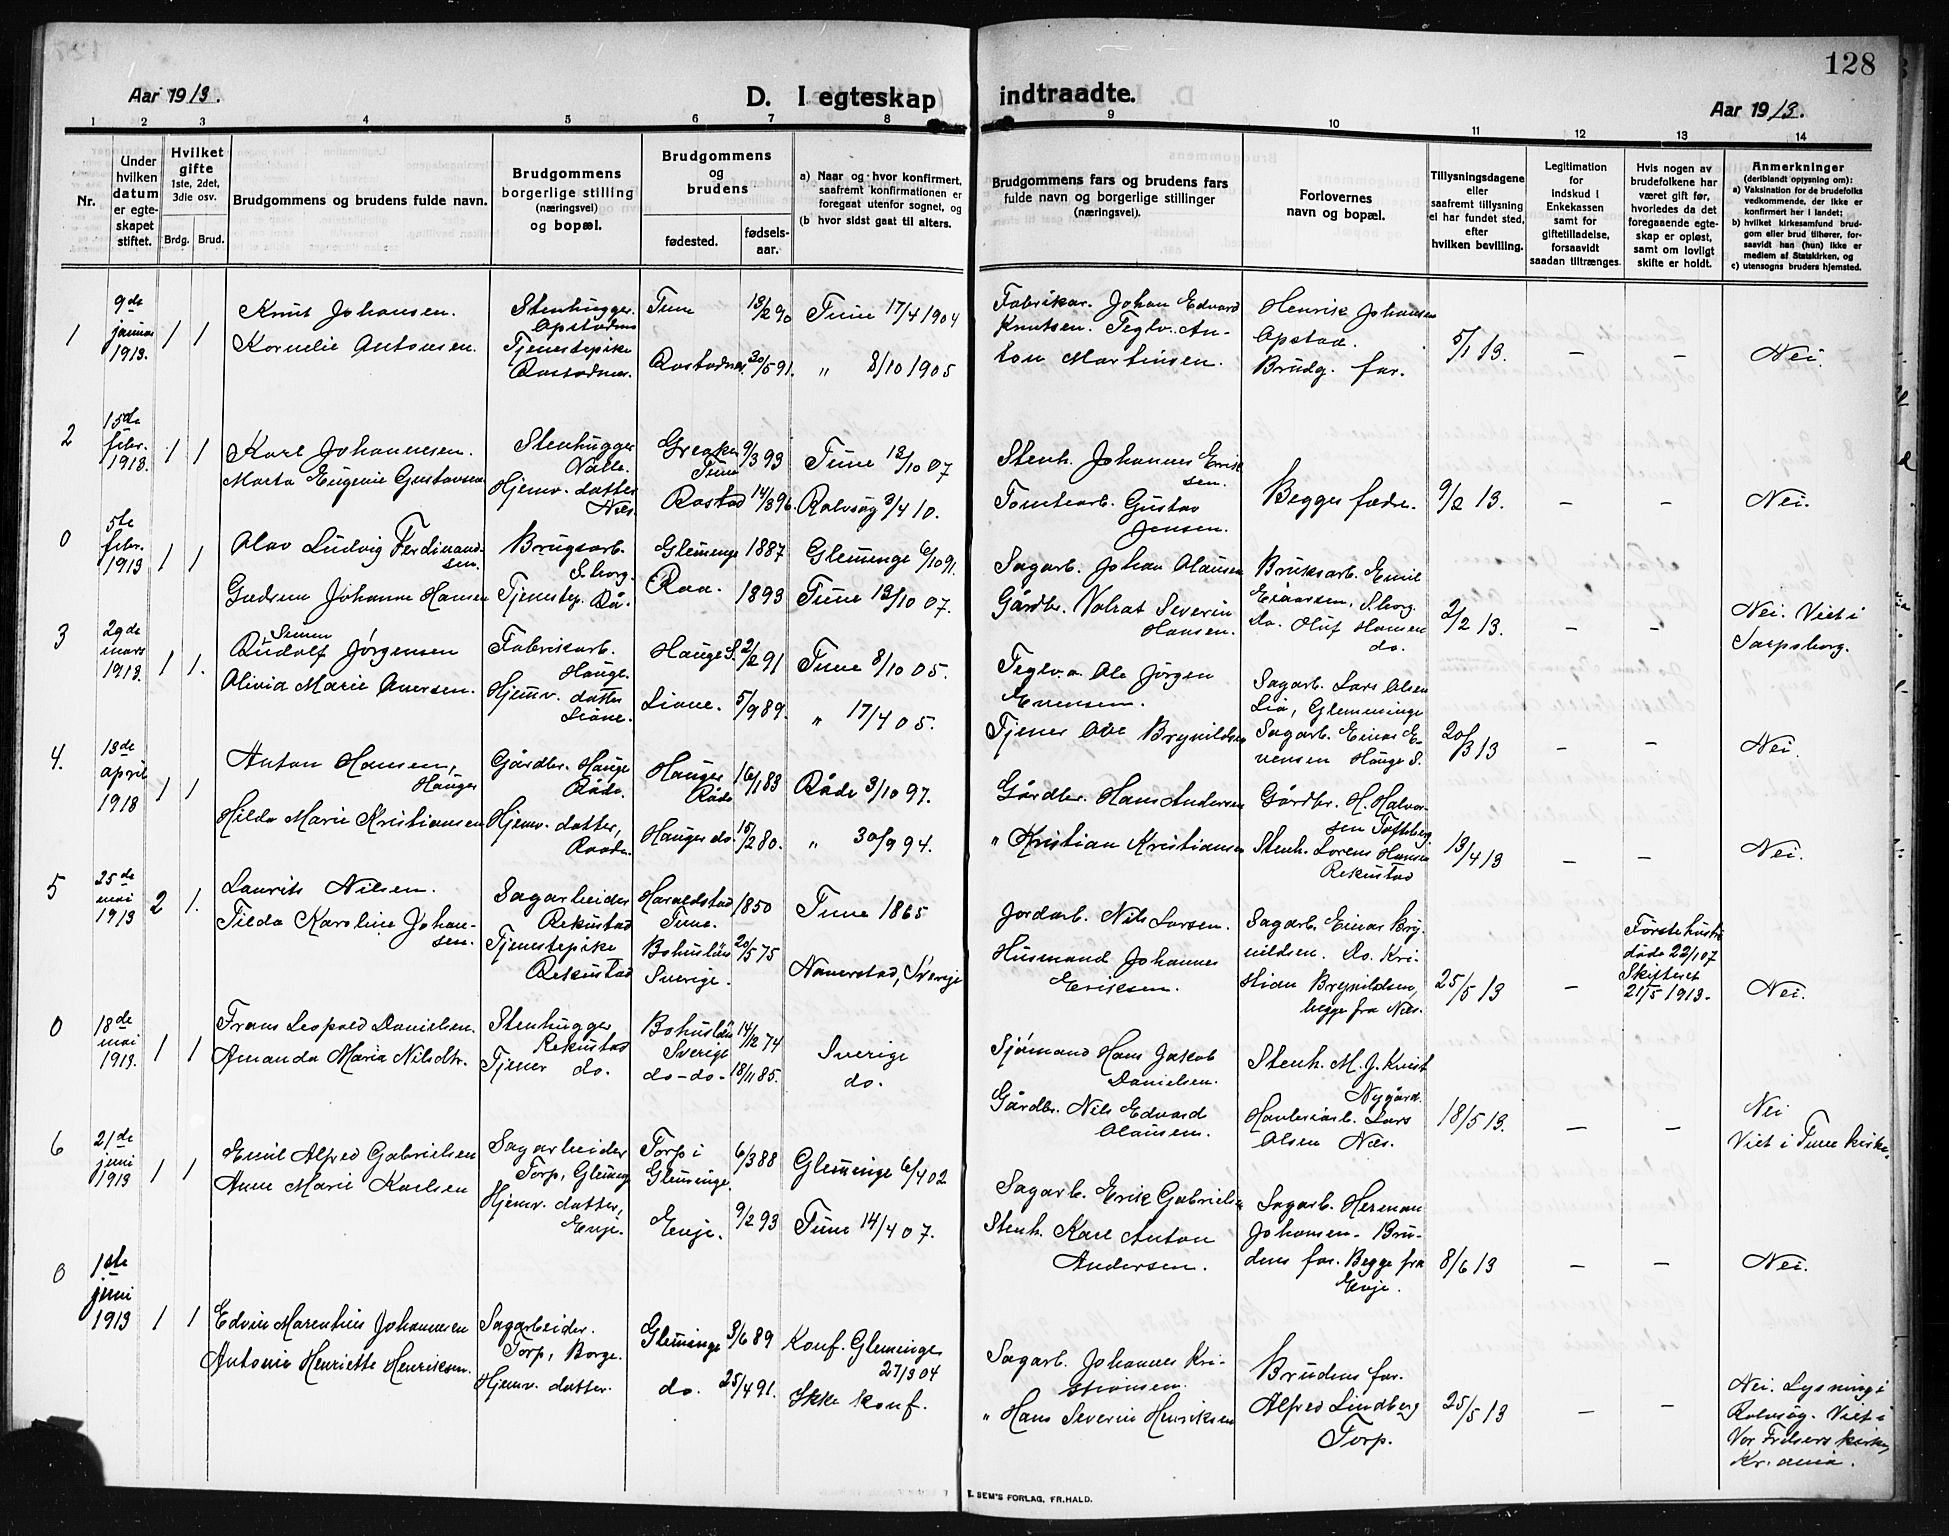 128
Aar 1913.
D. I egteskap indtraadte.
Aar 1913.
1 2 3 4 5 6 7 8 9 10 11 12 13 14
Nr.
Under hvilken datum er egteskapet stiftet.
Hvilket gifte 1ste, 2det, 3die osv.
Brdg. Brud.
Brudgommens og brudens fulde navn.
Brudgommens borgerlige stilling (næringsvei) og bopæl.
Brudgommens og brudens
fødested.
fødselsaar.
a) Naar og hvor konfirmert, saafremt konfirmationen er foregaat utenfor sognet, og
(b hvor sidst gaat til alters.
Brudgommens fars og brudens fars fulde navn og borgerlige stillinger (næringsvei).
Forlovernes navn og bopæl.
Tillysningsdagene eller saafremt tillysning ei har fundet sted, efter hvilken bevilling.
Legitimation for indskud i Enkekassen samt for giftetilladelse, forsaavidt saadan tiltrænges.
Hvis nogen av brudefolkene har været gift før, hvorledes da det foregaaende egteskap er opløst, samt om lovligt skifte er holdt.
Anmerkninger (deriblandt oplysning om): a) Vaksination for de brudefolks vedkommende, der ikke er konfirmert her i landet; b) hvilket kirkesamfund brudgom eller brud tilhører, forsaavidt han (hun) ikke er medlem af Statskirken, og c) utensogns bruders hjemsted.
1
9de januar 1913.
1 1
Knut Johansen.
Kornelie Antonsen.
Stenhugger.
Opstadnes
Tjenestepike
Rostadnes.
Tune 13/2 90
Rostadnes. 30/5 91.
Tune 17/4 1904
" 8/10 1905
Fabrikar. Johan Edvard
Knutsen. Teglv. An-
ton Martinsen.
Henrik Johansen
Opstad.
Brudg. far.
5/1 13.
– –
Nei.
2
15de febr. 1913.
1 1
Karl Johannesen.
Marta Eugenie Gustavsen
Stenhugger
Valle.
Hjemv. datter
Nes
Greaker
Tune 9/3 93
Rostad 14/3 96.
Tune 13/10 07
Rolvsøy 3/4 10.
Stenh. Johannes Erik
sen.
Tomtearb. Gustav
Jensen.
Begges fædre.
9/2 13.
– –
Nei.
0
5te febr. 1913
1 1
Olav Ludvig Ferdinand-
sen.
Gudrun Johanne Hansen
Brugsarb.
S.borg.
Tjenestep. Rå.
Glemminge 1887
Raa. 1893
Glemminge 6/10 91.
Tune 13/10 07.
Sagarb. Johan Olausen
Gårdbr. Volrat Severin
Hansen.
Bruksarb. Emil
Einarsen, S.borg.
Do. Oluf Hansen
do.
2/2 13.
– –
Nei. Viet i
Sarpsborg.
3
29de mars 1913.
1 1.
Rudolf Simen Jørgensen
Olivia Marie Ovesen.
Fabrikarb.
Hauge.
Hjemv. datter
Liane.
Hauge S. 2/2 91
Liane. 5/9 89.
Tune 8/10 05.
" 17/4 05.
Teglv.a. Ole Jørgen
Evensen.
Tjener Ove Brynildsen
Sagarb. Lars Olsen
Lia, Glemminge
Sagarb. Einar E-
vensen Hauge S.
20/3 13
– –
Nei.
4.
13de april 1913
1 1
Anton Hansen,
Hauger
Hilda Marie Kristiansen
Gårdbr. Hauge
Råde.
Hjemv. datter,
Raade.
Hauger
Råde 16/1 83
Hauger do. 15/2 80.
Råde 3/10 97.
" 30/9 94.
Gårdbr. Hans Andersen
" Kristian Kristiansen
Gårdbr. H. Halvor-
sen Tofteberg
Stenh. Lorens Hansen
Rekustad
13/4 13
– –
Nei.
5
25de mai 1913
2 1.
Laurits Nilsen.
Tilda Karoline Johan-
sen.
Sagarbeider
Rekustad
Tjenestepike
Rekustad
Haraldstad
Tune. 1850
Bohuslän
Sverige. 20/5 75
Tune 1865
Naverstad, Sverige
Jordarb. Nils Larsen.
Husmand Johannes
Eriksen.
Sagarb. Einar Bry-
nildsen. Do. Kri-
stian Brynildsen,
begge fra Nes.
25/5 13
–
Første hustru
døde 22/1 07
Skifteret
21/5 1913.
Nei.
0
18de mai 1913.
1 1
Frans Leopold Danielsen.
Amanda Maria Nilsdtr.
Stenhugger
Rekustad
Tjener do.
Bohuslän
Sverige 14/12 74
do – do – 18/11 85.
Sverige
do.
Sjømand Hans Jakob
Danielsen.
Gårdbr. Nils Edvard
Olausen.
Stenh. M. J. Kvist
Nygård.
Lars
Olsen Nes.
18/5 13.
– –
Nei
Viet i Tune kirke.
6
21de juni 1913
1 1
Emil Alfred Gabrielsen
Anne Marie Karlsen
Sagarbeider
Torp, Glemmg.
Hjemv. datter,
Evje.
Torp i
Glemminge. 6/3 88
Evje. 9/2 93
Glemminge 6/4 02
Tune 14/4 07.
Sagarb. Erik Gabrielsen
Stenh. Karl Anton
Andersen.
Sagarb. Herman
Johansen. Bru-
dens far. Begge fra
Evje.
8/6 13
– –
Nei.
0
1ste juni 1913
1 1
Edvin Marentius Johannesen
Antonie Henriette Henriksen.
Sagarbeider.
Torp, Borge.
Hjemv. datter.
Glemminge 3/6 89
do. 25/4 91.
Konf. Glemminge
27/3 04
Ikke konf.
Sagarb. Johannes Kri-
stiansen.
" Hans Severin Henriksen
Brudens far.
Alfred Lindberg
Torp.
25/5 13
– –
Nei. Lysning i
Rolvsøy. Viet i
Vor Frelsers kirke,
Kr.ania.
E. SEM'S FORLAG, FR.HALD.